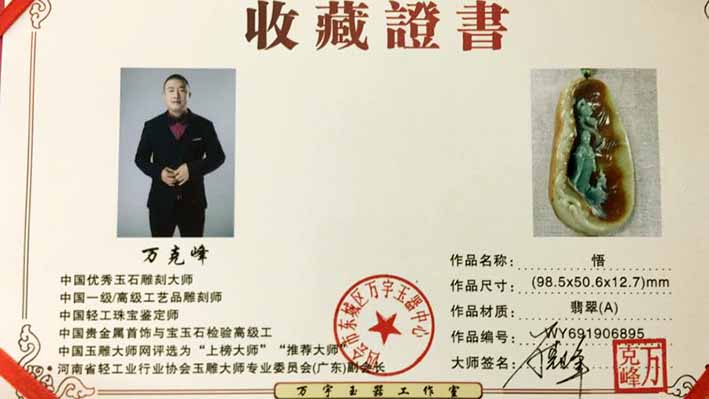 收藏證書
万克峰
中国优秀玉石雕刻大师
中国一级/高级工艺品雕刻师
中国轻工珠宝鉴定师
中国贵金属首饰与宝玉石检验高级工
中国玉雕大师网评选为“上榜大师”“推荐大师”
河南省轻工业行业协会玉雕大师专业委员会(广东)副会长
四会市东城区万字玉器中心
作品名称: 悟
作品尺寸: (98.5x50.6x12.7)mm
作品材质: 翡翠(A)
作品编号: WY691906895
大师签名: 万克峰
万克峰
万字玉器工作室